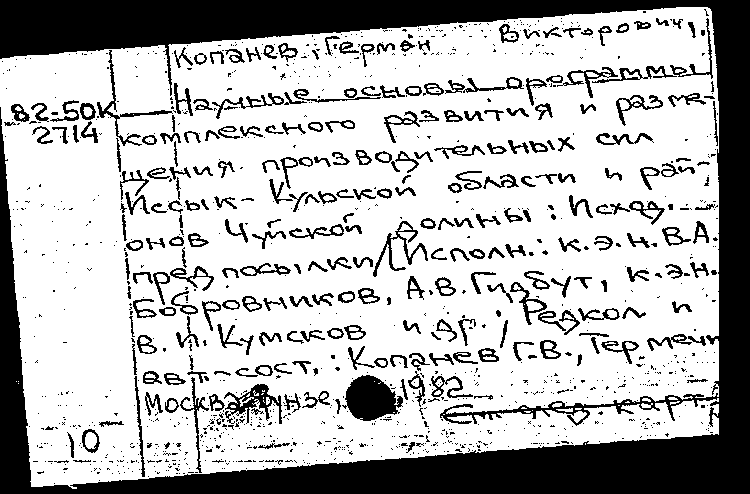 Копанев, Герман Викторович.
82-50К
2714
Научные основы программы
комплексного развития и разме-
щения производительных сил
Иссык-Кульской области и рай-
онов Чуйской долины: Исход.
предпосылки/[Исполн.: к.э.н. В.А.
Бобровников, А.В. Гидбут, к.э.н.
В.П. Кумсков и др.; Редкол и
авт.-сост.: Копанев Г.В.,
Москва, 1982
См след. карт.
10